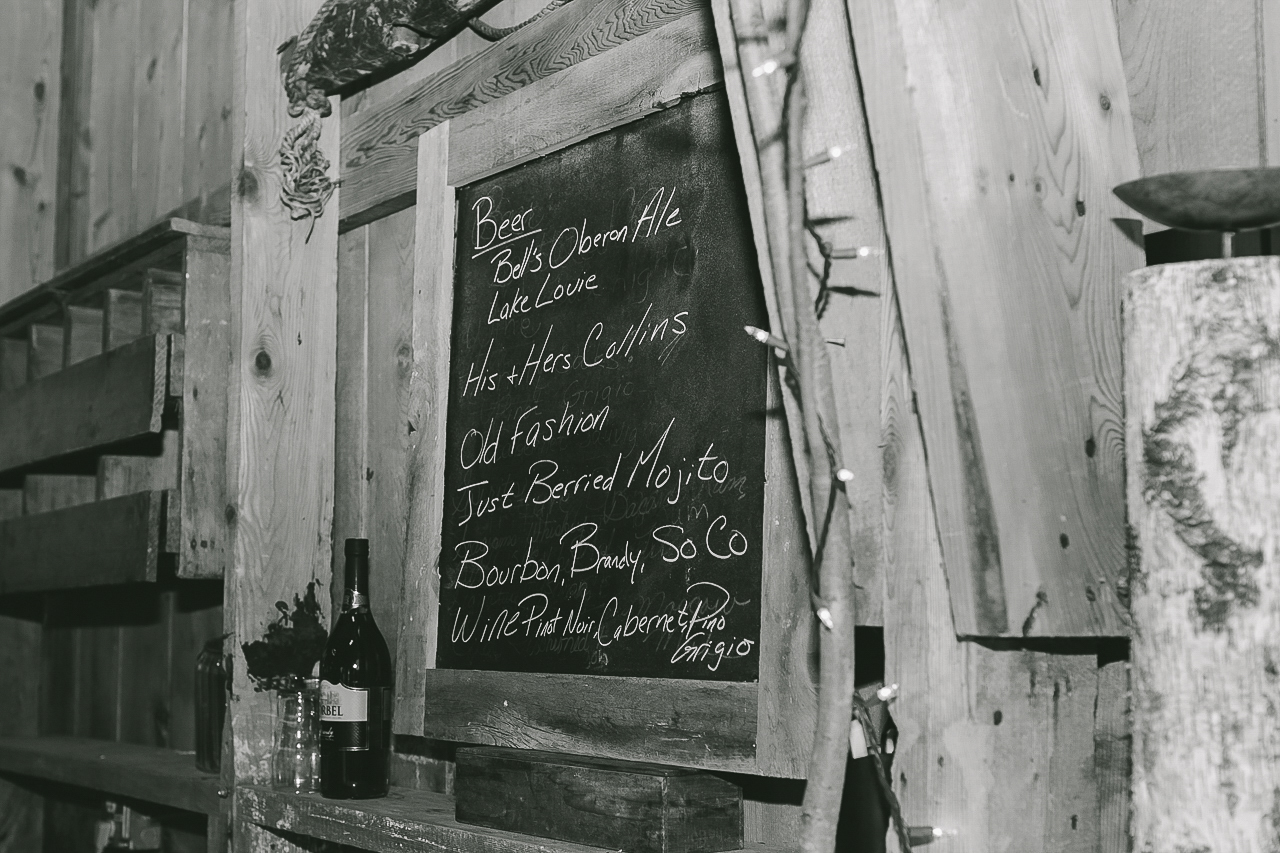 Beer
Bell's Oberon Ale
Lake Louie
His + Hers Collins
Old Fashion
Just Berried Mojito
Bourbon, Brandy, So Co
Wine Pinot Noir, Cabernet, Pino
Grigio
RBEL